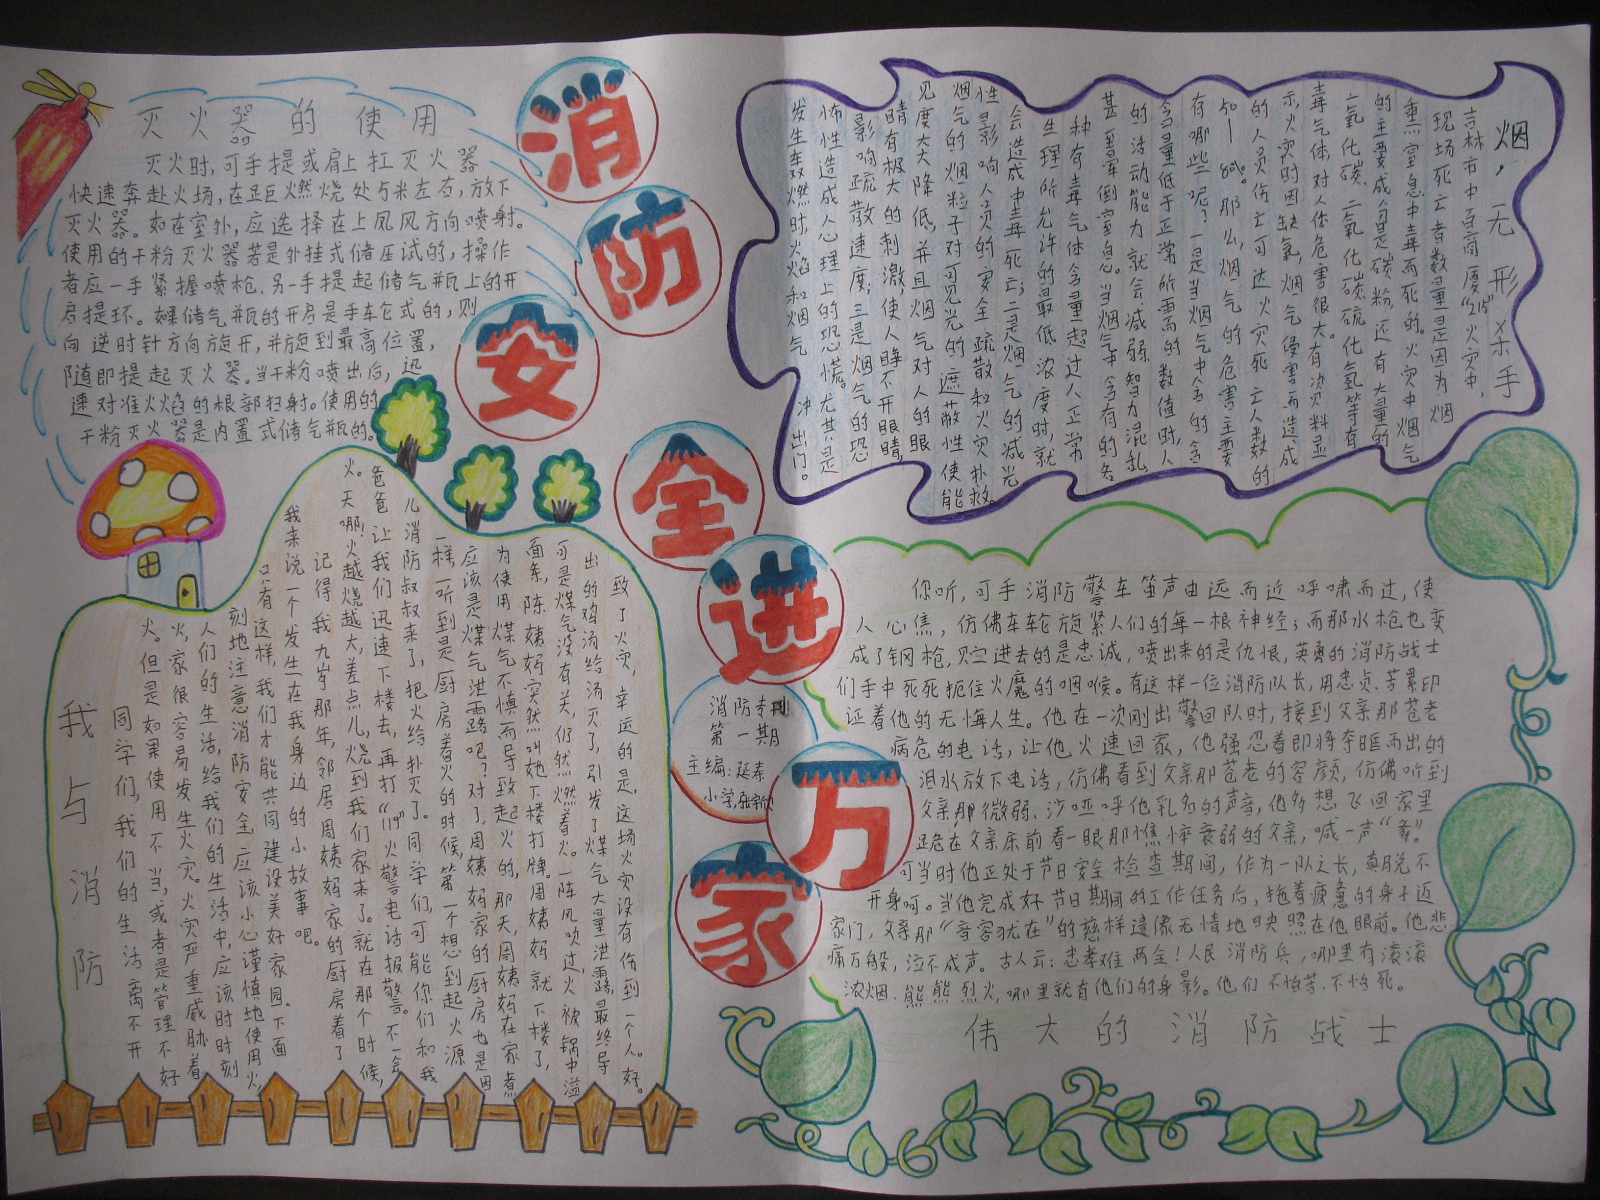 消防安全进万家
灭火器的使用
灭火时,可手提或肩上扛灭火器
快速奔赴火场,在距燃烧处5米左右,放下
灭火器。如在室外,应选择在上风风方向喷射。
使用的干粉灭火器若是外挂式储压试的,操作
者应一手紧握喷枪、另一手提起储气瓶上的开
启提环。如果储气瓶的开启是手轮式的,则
向逆时针方向旋开,并旋到最高位置,
随即提起灭火器。当干粉喷出后,迅
速对准火焰的根部扫射。使用的
干粉灭火器是内置式储气瓶的。
烟,无形杀手
吉林市中百商厦“2·15”火灾中,
现场死亡者数量是因为烟
熏窒息中毒而死的。火灾中烟气
的主要成分是碳粉,还有大量的
二氧化碳、一氧化碳、硫化氢等有
毒气体,对人体危害很大。有资料显
示,火灾时因缺氧、烟气侵害而造成
的人员伤亡可达火灾死亡人数的
50—80%。那么,烟气的危害主要
有哪些呢?一是当烟气中含的含
含量低于正常所需的数值时,人
的活动能力就会减弱、智力混乱
甚至晕倒窒息。当烟气中含有的各
种有毒气体含量超过人正常
生理所允许的最低浓度时,就
会造成中毒死亡;二是烟气的减光
性影响人员的安全疏散和火灾扑救。
烟气的烟粒子对可见光的遮蔽性使能
见度大大降低,并且烟气对人的眼
睛有极大的刺激,使人睁不开眼睛,
影响疏散速度;三是烟气的恐
怖性造成人心理上的恐慌。尤其是
发生轰燃时,火焰和烟气冲出门。
我与消防
同学们,我们的生活离不开
火。但是如果使用不当,或者是管理不好
火,家很容易发生火灾。火灾严重威胁着
人们的生活,给我们的生活中,应该时时刻
刻地注意消防安全,应该小心谨慎地使用火,
只有这样,我们才能共同建设美好家园。下面
我来说一个发生在我身边的小故事吧。
记得我九岁那年,邻居周姨妈家的厨房着了
火。天哪,火越烧越大,差点儿烧到我们家来了。就在那个时候,
爸爸让我们迅速下楼去,再打“119”火警电话报警。不一会
儿消防叔叔来了,把火给扑灭了。同学们,可能你们和我
一样,一听到是厨房着火的时候,第一个想到起火源
应该是煤气泄露吧?对了,周姨妈家的厨房也是因
为使用煤气不慎而导致起火的,那天,周姨妈在家煮
面条,陈姨妈突然叫她下楼打牌。周姨妈就下楼了,
可是煤气没有关,仍然燃着火。一阵风吹过,火被锅中溢
出的鸡汤给浇灭了,引发了煤气大量泄露,最终导
致了火灾,幸运的是这场火灾没有伤到一个人。好。
消防专刊
第一期
主编:延寿
小学
你听,可手消防警车笛声由远而近呼啸而过,使
人心焦,仿佛车轮旋紧人们的每一根神经;而那水枪也变
成了钢枪,贮进去的是忠诚,喷出来的是仇恨,英勇的消防战士
们手中死死扼住火魔的咽喉。有这样一位消防队长,用忠贞、劳累印
证着他的无悔人生。他在一次刚出警回队时,接到父亲那苍老
病危的电话,让他火速回家,他强忍着即将夺眶而出的
泪水放下电话,仿佛看到父亲那苍老的容颜,仿佛听到
父亲那微弱、沙哑呼他乳名的声音,他多想飞回家里
跪在父亲床前看一眼那憔悴衰弱的父亲,喊一声“爹”
可当时他正处于节日安全检查期间,作为一队之长,真脱不
开身呵。当他完成好节日期间的工作任务后,拖着疲惫的身子迈
家门,父亲那“音容犹在”的慈祥遗像无情地映照在他眼前。他悲
痛万般,泣不成声。古人云:忠孝难两全!人民消防兵,哪里有滚滚
浓烟、熊熊烈火,哪里就有他们的身影。他们不怕苦、不怕死。
伟大的消防战士